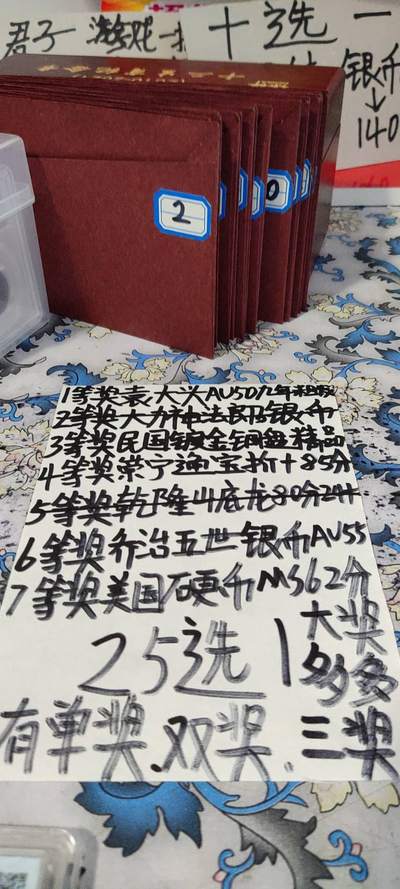 君子 游戏
十选一
银币
↓
140
2
0
1等奖袁大头AU50九年
2等奖大力神法郎银币
3等奖民国镀金铜盘精品
4等奖崇宁通宝折十85分
5等奖乾隆山底龙80分24
6等奖乔治五世银币AU55
7等奖美国硬币MS62分
25选1
大奖
多多
有单奖.双奖.三奖